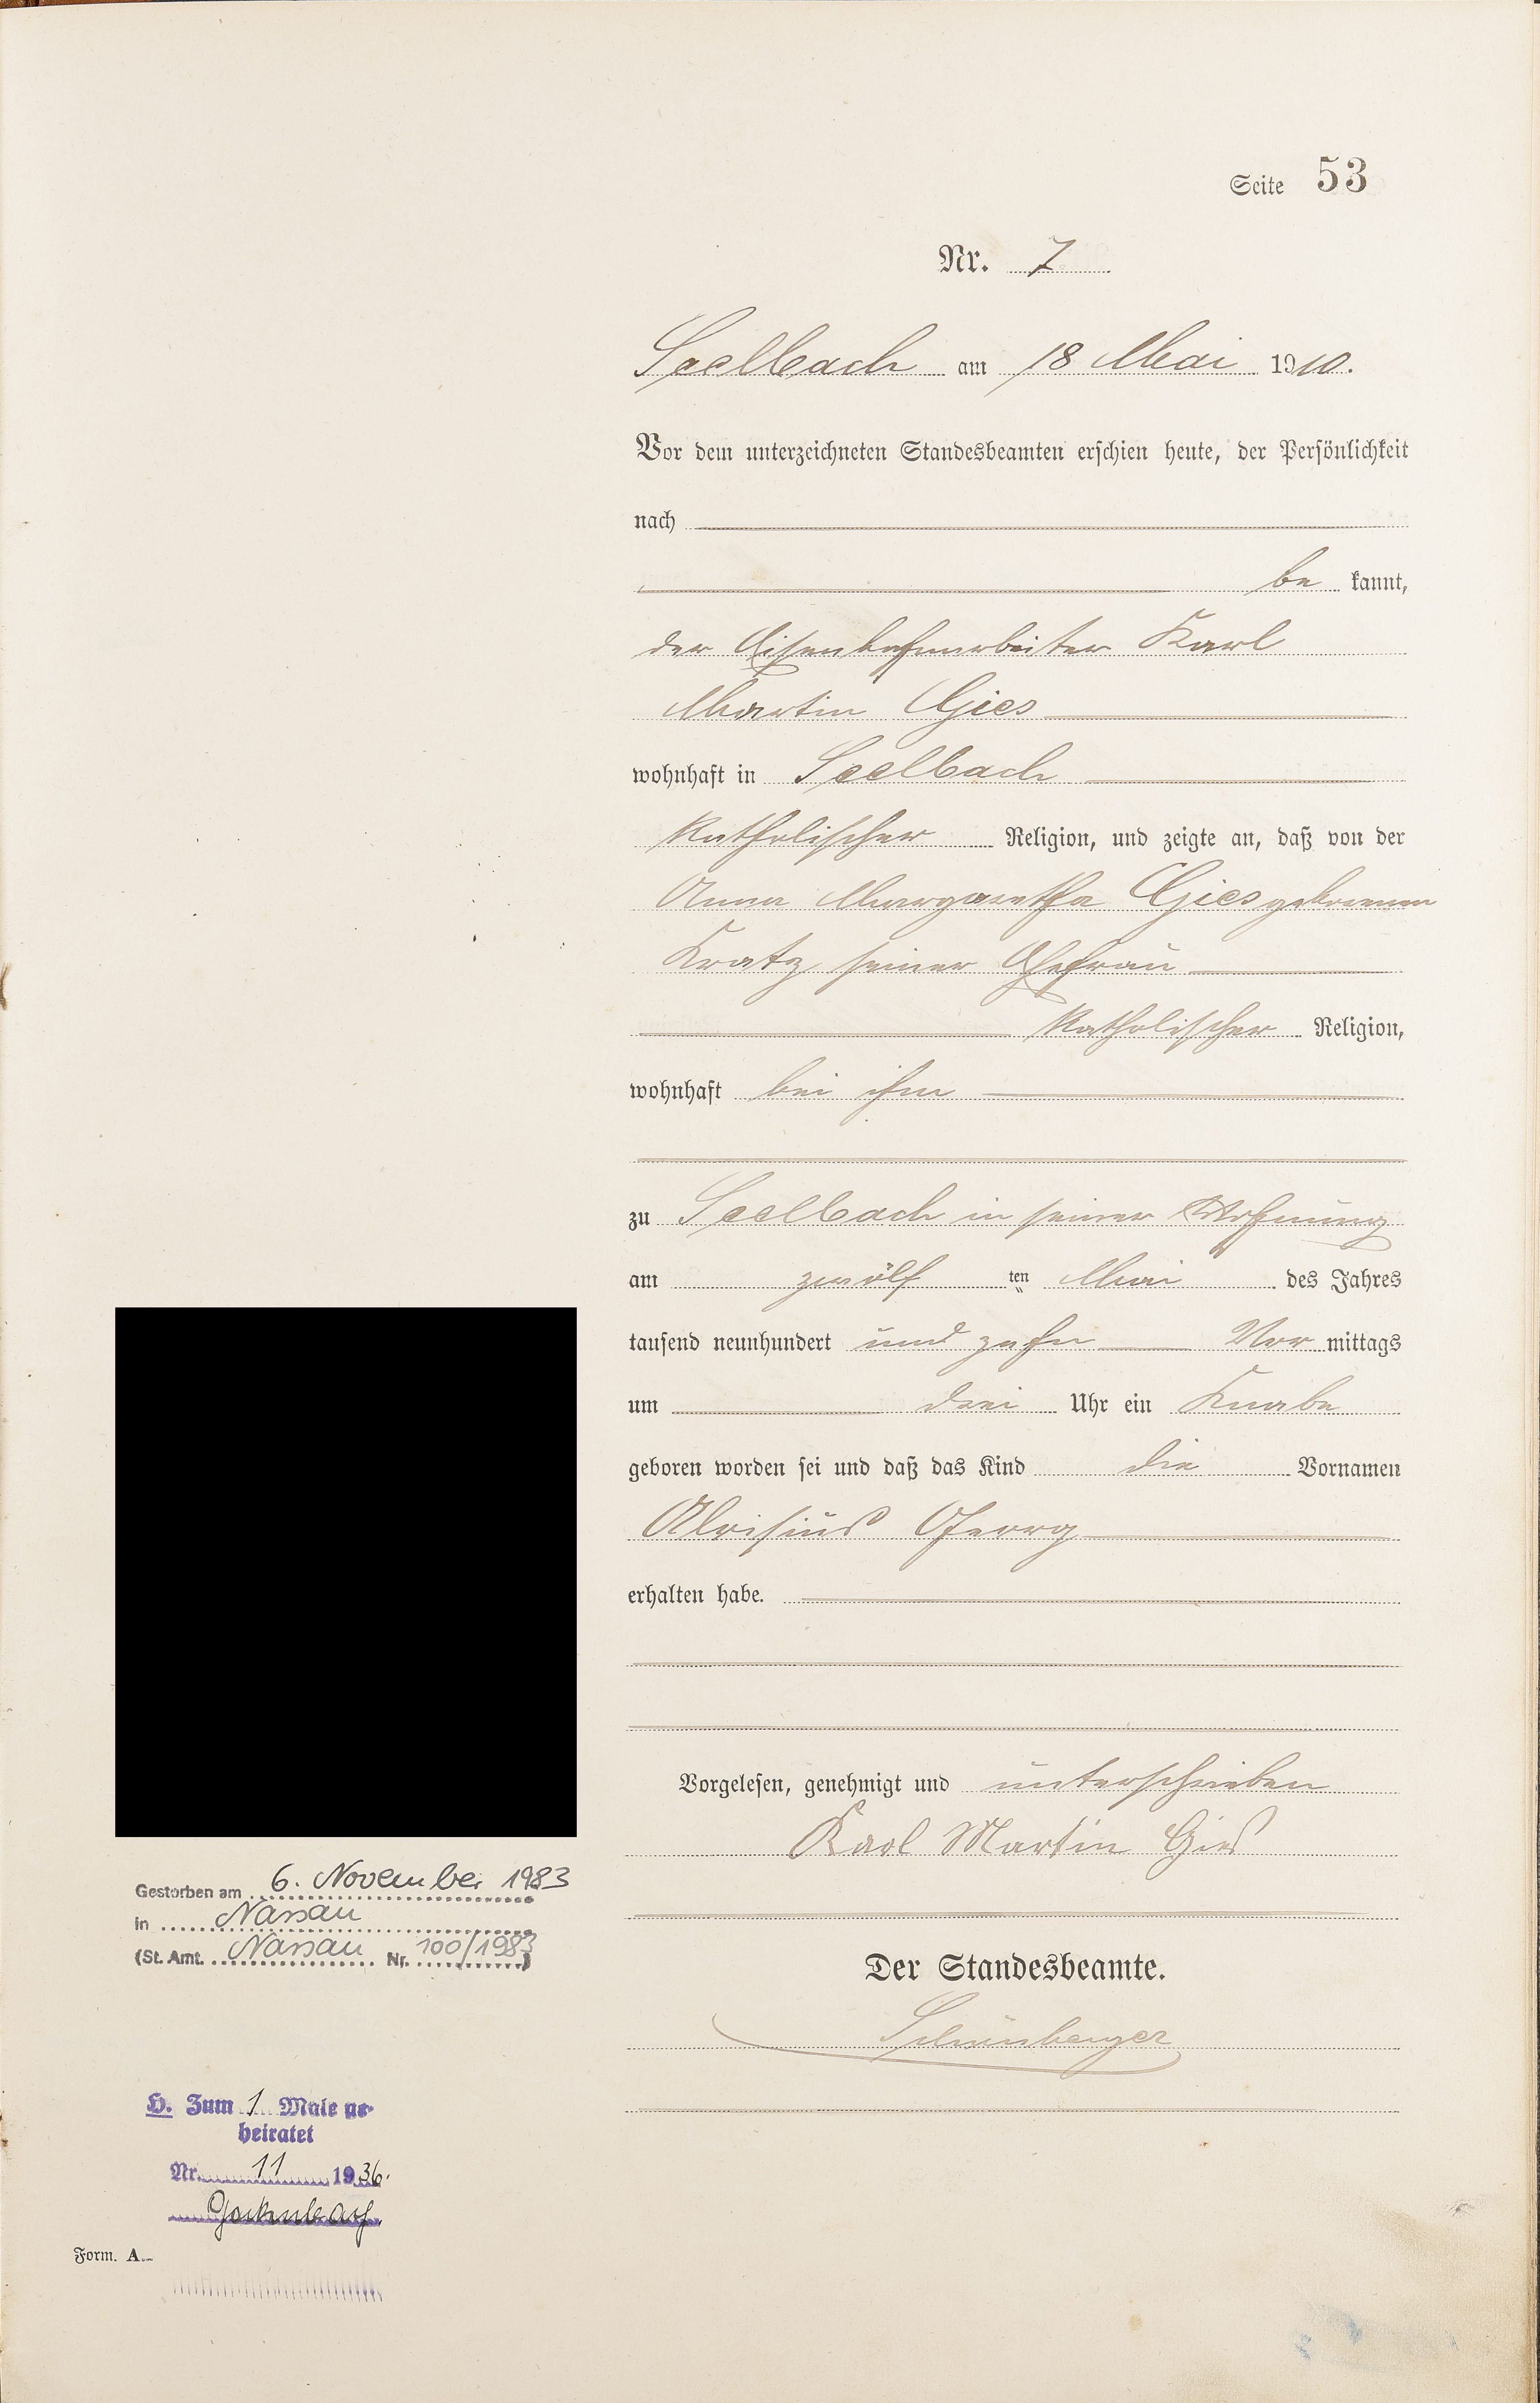 Seite 53
Nr. 7
Seelbach am 18 Mai 1910.
Vor dem unterzeichneten Standesbeamten erschien heute, der Persönlichkeit
nach
be kannt,
der Eisenbahnarbeiter Karl
Martin Gies
wohnhaft in Seelbach
katholischer Religion, und zeigte an, daß von der
Anna Margaretha Gies geborenen
Kratz seiner Ehefrau
katholischer Religion,
wohnhaft bei ihm
zu Seelbach in seiner Wohnung
am zwölf ten Mai des Jahres
tausend neunhundert und zehn Vor mittags
um drei Uhr ein Knabe
geboren worden sei und daß das Kind die Vornamen
Aloisius Georg
erhalten habe.
Vorgelesen, genehmigt und unterschrieben
Karl Martin Gies
Der Standesbeamte.
Gestorben am 6. November 1983
in Nassau
(St. Amt. Nassau Nr. 100/1983)
H. Zum 1 Male ge-
heiratet
Nr. 11 1936.
Form. A.